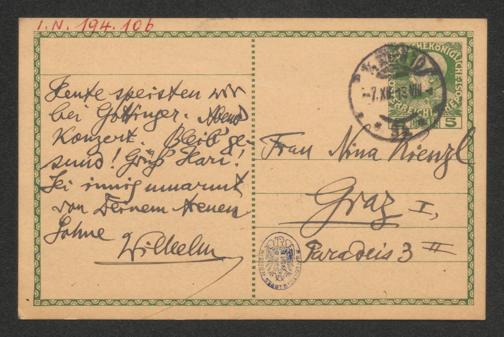 I.N. 194.106
Heute speisten wir
bei Göttinger. Abend
Konzert. Bleib ge-
sund! Grüß Hari!
Sei innig umarmt
von Deinem treuen
Sohne
Wilhelm
Frau Nina Kienzl
Graz I,
Paradeis 3 II